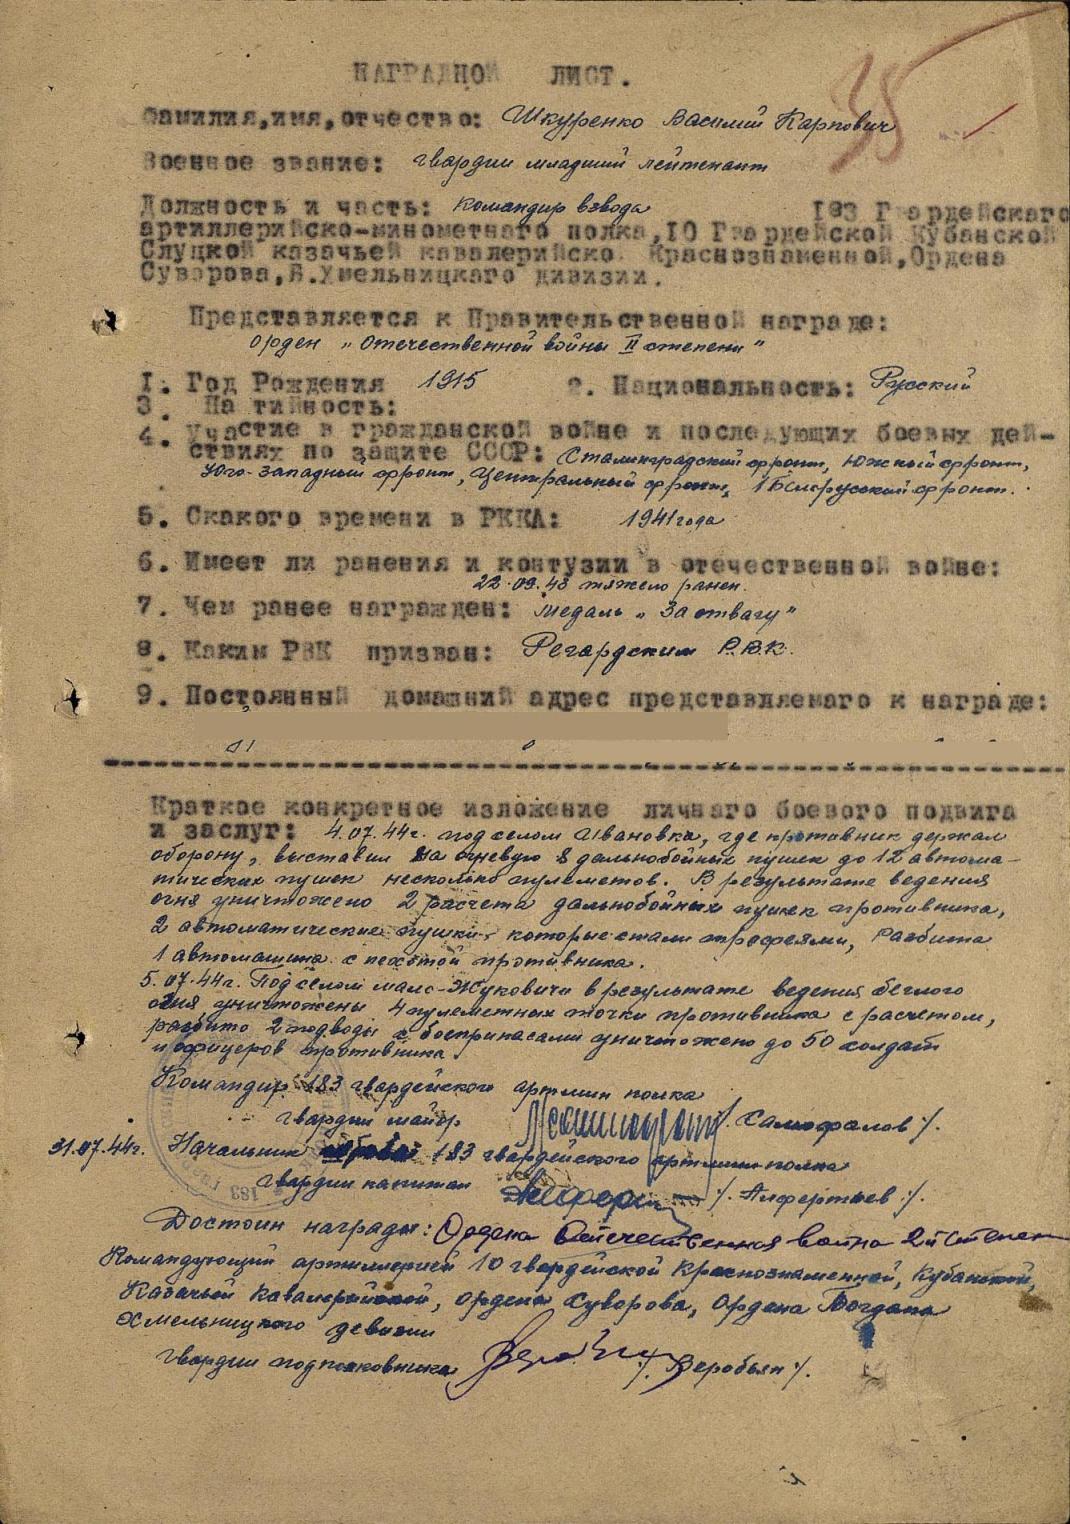 35
НАГРАДНОЙ ЛИСТ.
Фамилия,имя,отчество: Шкуренко Василий Карпович
Военное звание: гвардии младший лейтенант
Должность и часть: командир взвода 183 Гвардейскаго
артиллерийско-минометнаго полка,10 Гвардейской Кубанской
Слуцкой казачьей кавалерийско Краснознаменной,Ордена
Суворова,Б.Хмельницкаго дивизии.
Представляется к Правительственной награде:
орден „Отечественной войны II степени"
I. Год Рождения 1915 2. Национальность: Русский
3. Па тийность:
4. Участие в гражданской войне и последующих боевых дей-
ствиях по защите СССР: Сталинградский фронт, Южный фронт,
Юго-западный фронт, Центральный фронт, 1 Белорусский фронт.
5. Скакого времени в РККА: 1941 года
6. Имеет ли ранения и контузии в отечественной войне:
22.09.43 тяжело ранен.
7. Чем ранее награжден: медаль „За отвагу"
8. Каким РВК призван: Р.В.К.
9. Постоянный домашний адрес представляемаго к награде:
Краткое конкретное изложение личнаго боевого подвига
и заслуг: 4.07.44г. под селом Ивановка, где противник держал
оборону, выставил на огневую 8 дальнобойных пушек до 12 автома-
тических пушек несколько пулеметов. В результате ведения
огня уничтожено 2 расчета дальнобойных пушек противника,
2 автоматические пушки которые стали трофеями, разбита
1 автомашина с пехотой противника.
5.07.44г. Под селом мало-Жуковичи в результате ведения беглого
огня уничтожены 4 пулеметных точки противника с расчетом,
разбито 2 подводы с боеприпасами уничтожено до 50 солдат
и офицеров противника.
Командир 183 гвардейского артмин полка
гвардии майор /. Самофалов ./.
31.07.44г. Начальник 183 гвардейского артмин полка
гвардии капитан /. Алфертьев ./.
Достоин награды: Ордена Отечественная война 2й степени
Командующий артиллерией 10 гвардейской Краснознаменной, Кубанской,
Казачьей Кавалерийской, ордена Суворова, Ордена Богдана
Хмельницкого девизии
гвардии подполковника /. Веробьян ./.